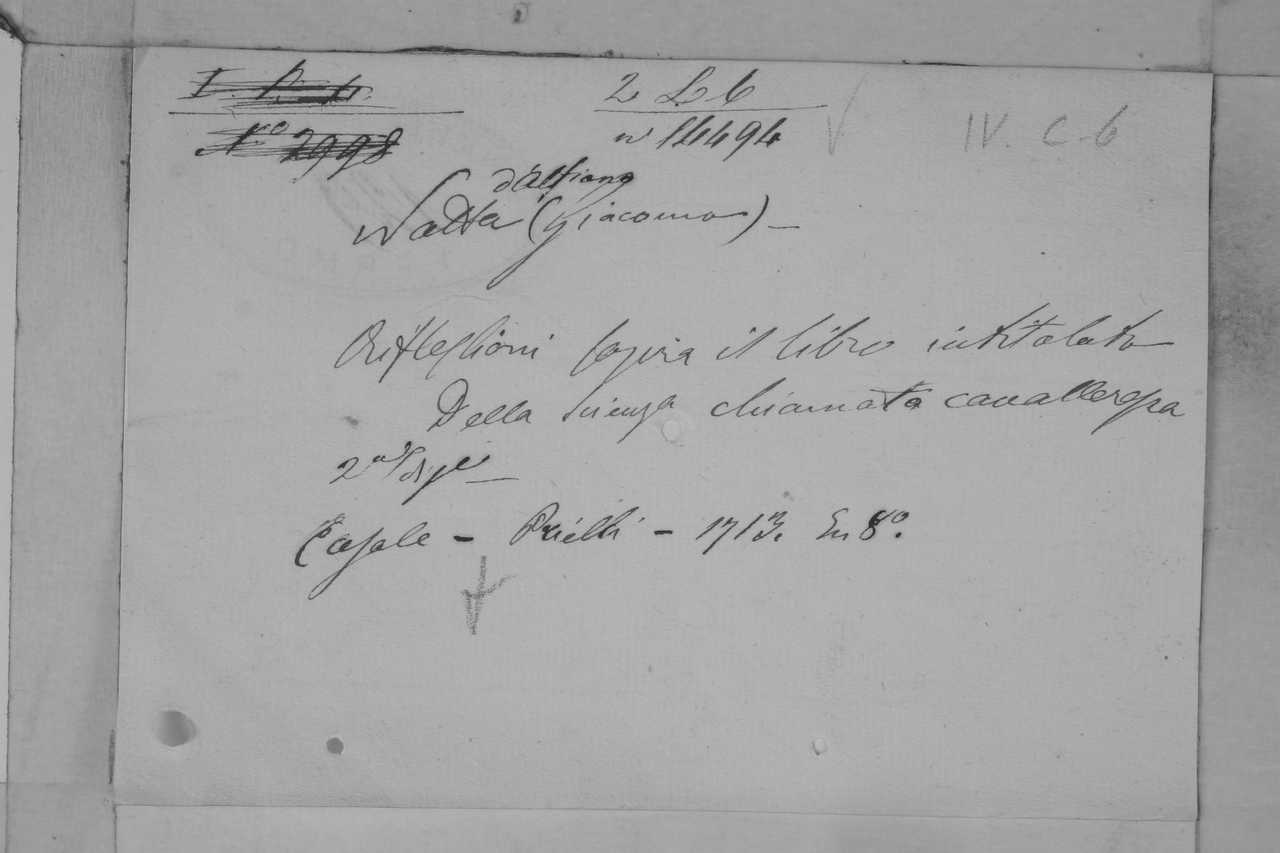 I. B. 4. 2 L 6
N° 2998 n 14494 IV. C. 6
d'Alfiano
Natta (Giacomo) -
Riflessioni sopra il libro intitolato
Della scienza chiamata cavalleresca
2a
Casale - Prielli - 1713. In 8°.